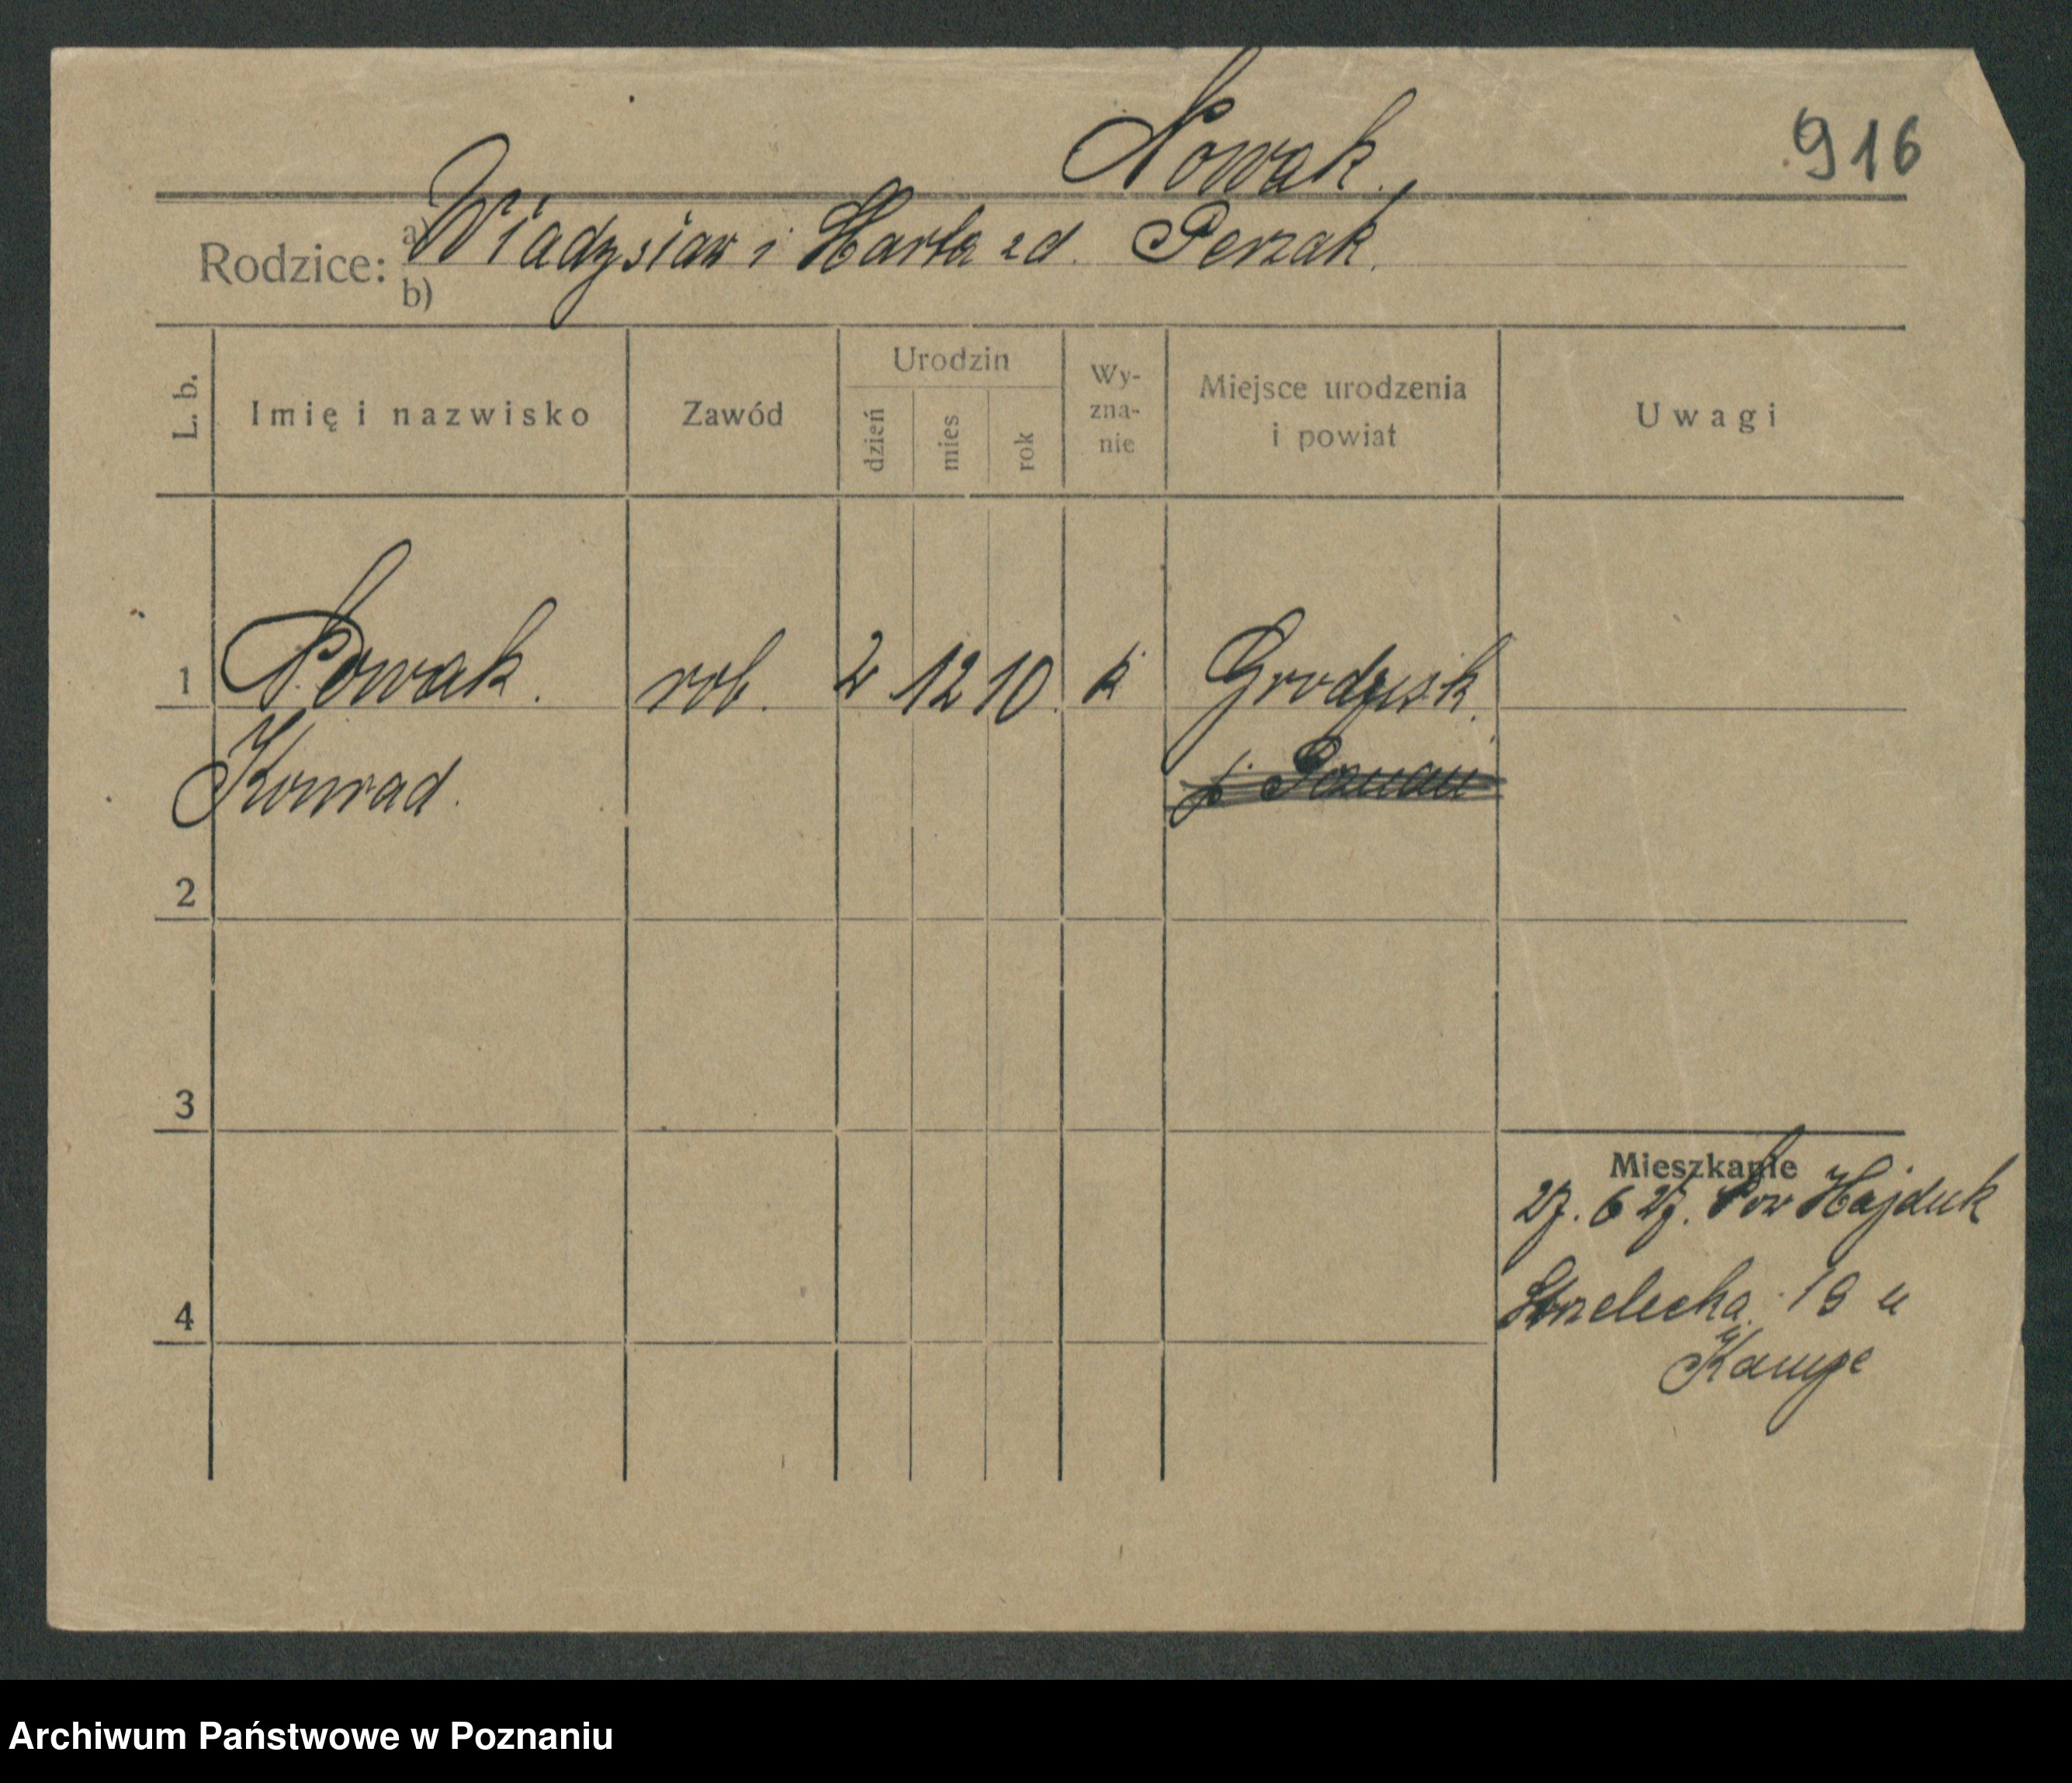 Nowak.
916
Rodzice: a) Władysław i Marta zd. Perzak.
b)
L. b. Imię i nazwisko Zawód Urodzin dzień mies rok Wy-zna-nie Miejsce urodzenia i powiat Uwagi
1 Nowak. rob. 2 12 10. k Grodzisk.
Konrad. p. Poznań
2
3
Mieszkanie
27. 6 27. Now Hajduk
4 Strzelecka. 19 u
Kampe
Archiwum Państwowe w Poznaniu